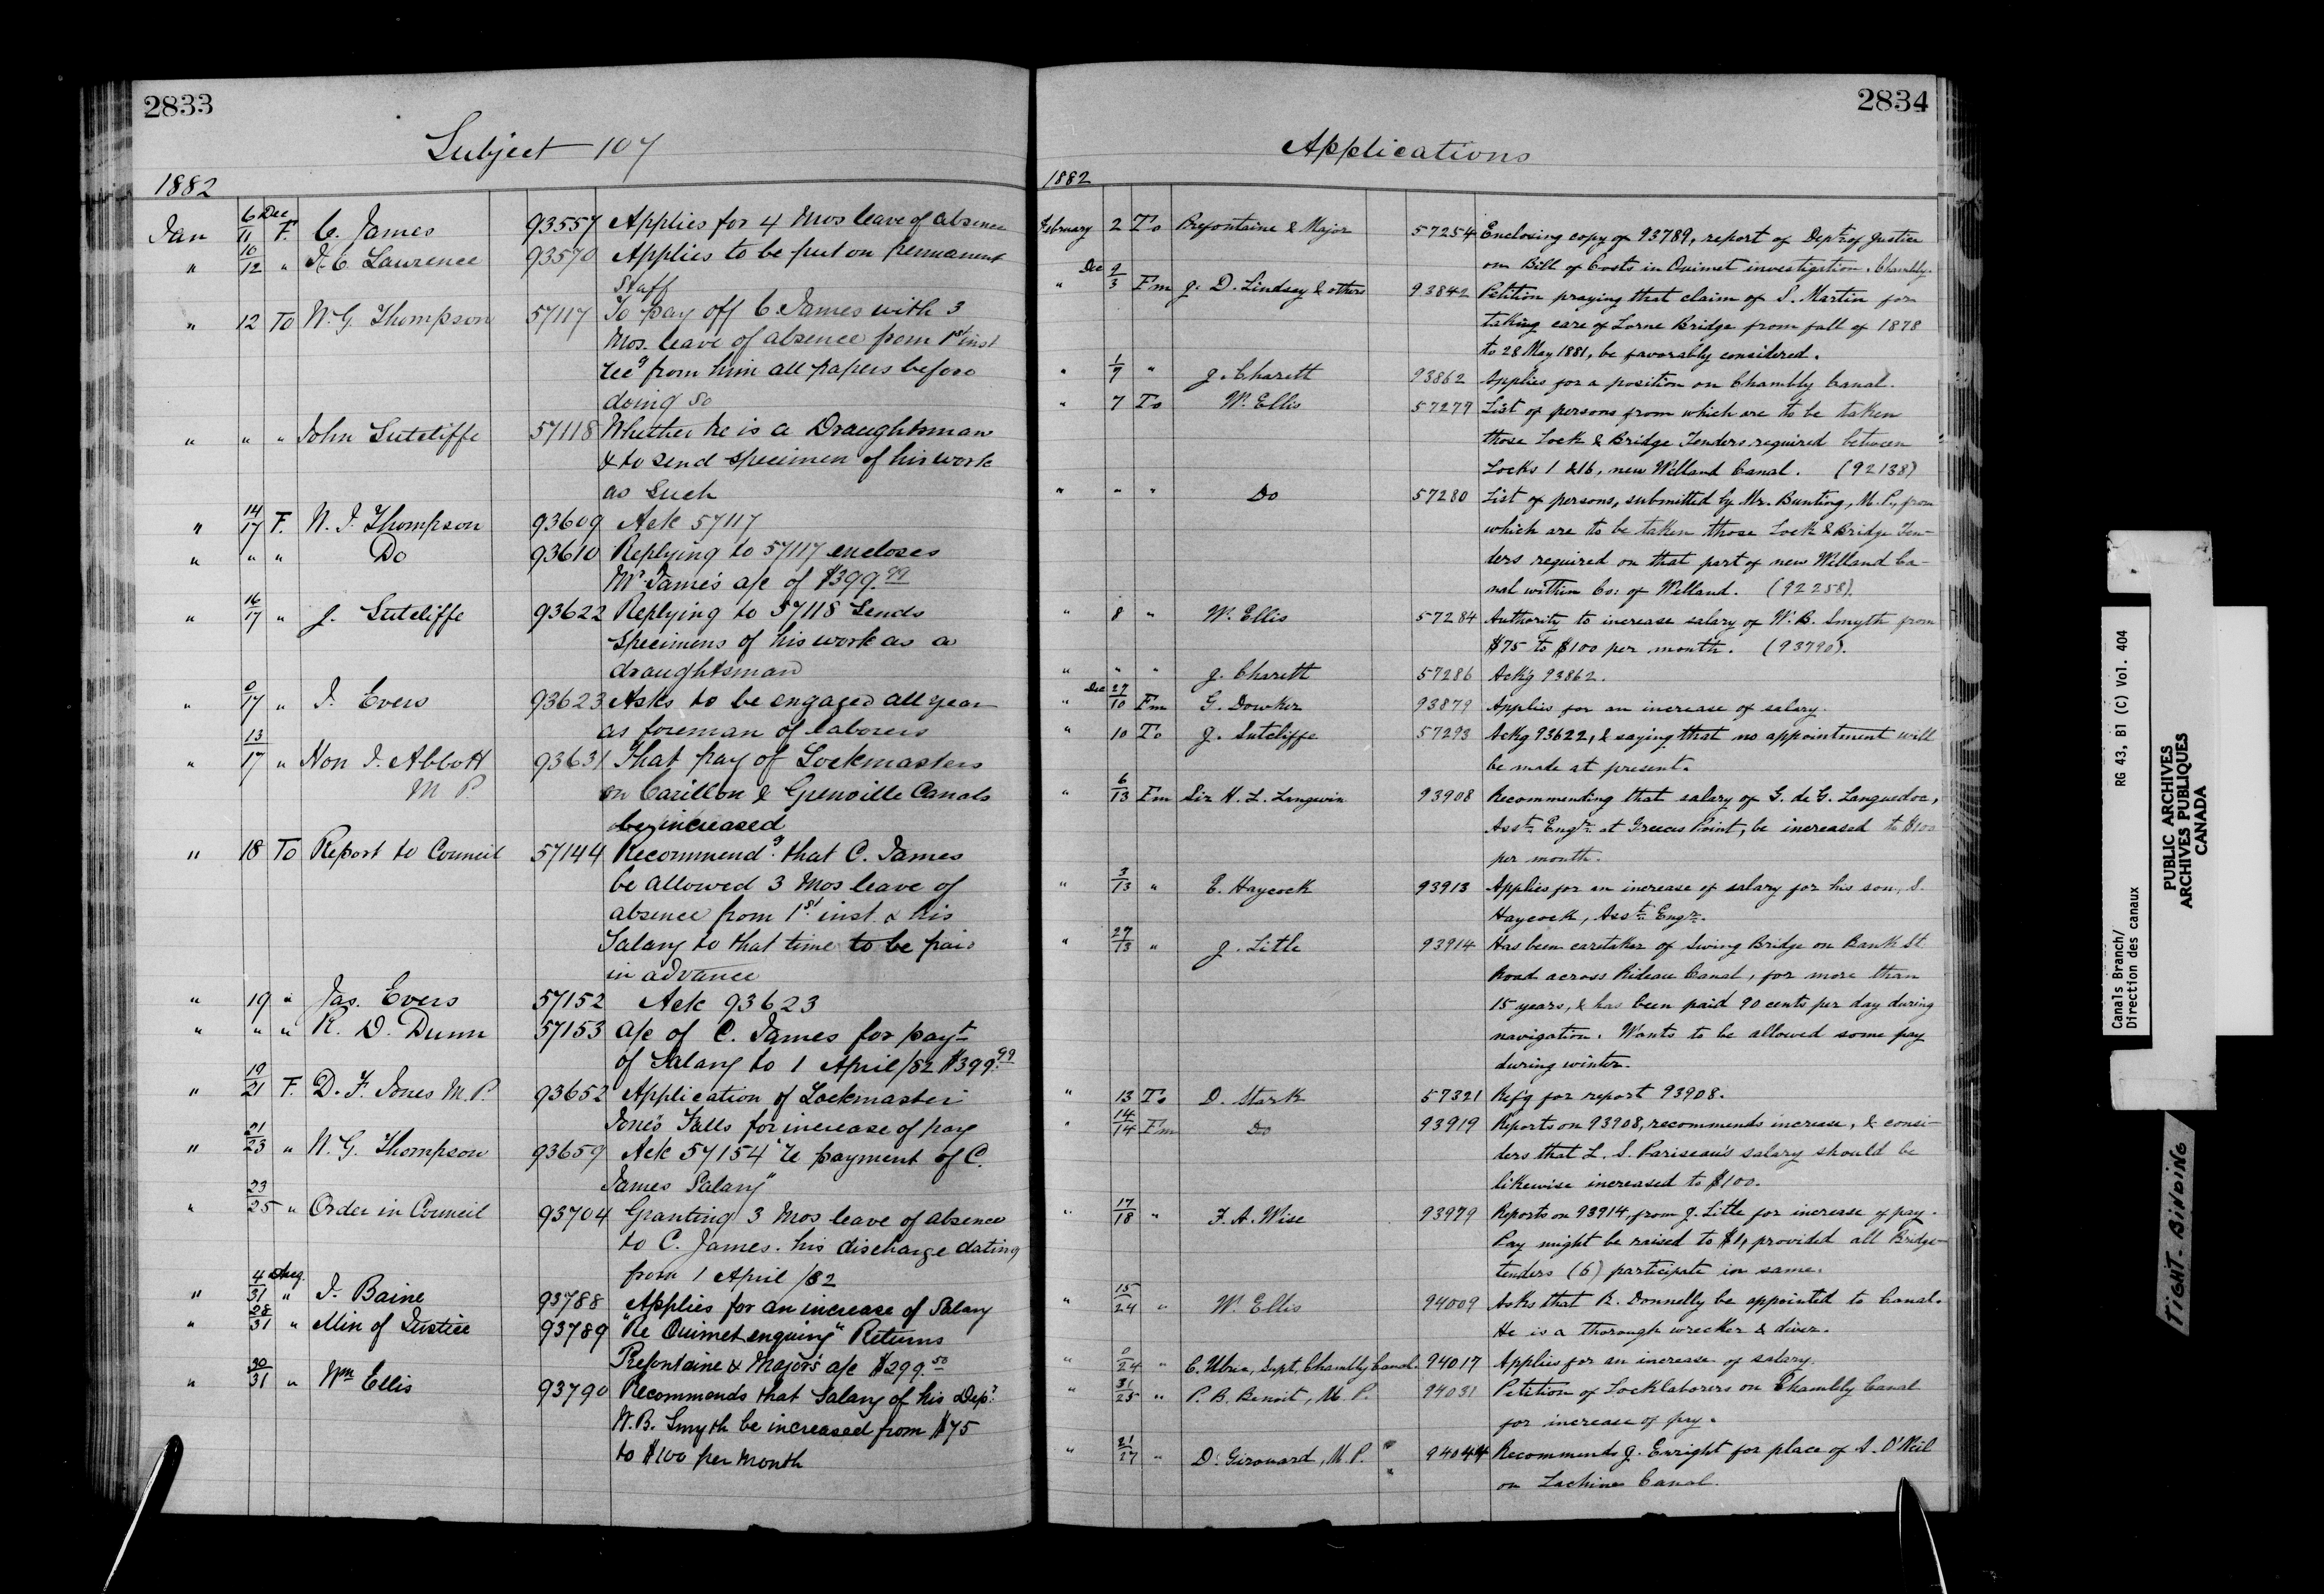 2833
Subject 107
1882
Jan 6 Dec/11 F. C. James 93557 Applies for 4 Mos leave of absence
" 10/12 " A C Lawrence 93570 Applies to be put on permanent
Staff
" 12 To W. G. Thompson 57117 To pay off C James with 3
Mos. leave of absence from 1st inst
recg from him all papers before
doing so
" " " John Sutcliffe 57118 Whether he is a Draughtsman
& to send specimen of his work
as such
" 14/17 F. W. G. Thompson 93609 Ack 57117
" " " Do 93610 Replying to 57117 encloses
Mr James a/c of $399.99
" 16/17 " J. Sutcliffe 93622 Replying to 57118 Sends
specimens of his work as a
draughtsman
" 0/17 " J. Evers 93623 Asks to be engaged all year
as foreman of laborers
" 13/17 " Hon J. Abbott 93631 That pay of Lockmasters
M P. on Carillon & Grenville Canals
be increased
" 18 To Report to Council 57144 Recommendg that C. James
be allowed 3 Mos leave of
absence from 1st inst & his
Salary to that time to be paid
in advance
" 19 " Jas. Evers 57152 Ack 93623
" " " R. D. Dunn 57153 a/c of C. James for payt
of Salary to 1 April/82 $399.99
" 19/21 F. D. F. Jones M.P. 93652 Application of Lockmaster
Jones Falls for increase of pay
" 21/23 " W. G. Thompson 93659 Ack 57154 "re payment of C.
James Salary"
" 23/25 " Order in Council 93704 Granting 3 Mos leave of absence
to C. James. his discharge dating
from 1 April /82
" 4 Aug./31 " J. Baine 93788 Applies for an increase of Salary
" 28/31 " Min of Justice 93789 "Re Ouimet enquiry" Returns
Prefontaine & Major's a/c $299.50
" 30/31 " Wm Ellis 93790 Recommends that Salary of his Dep.
W. B. Smyth be increased from $75
to $100 per month
2834
Applications
1882
February 2 To Prefontaine & Major 57254 Enclosing copy of 93789, report of Dept. of Justice
on Bill of Costs in Ouimet investigation. Chambly.
" Dec 9/3 Fm J. D. Lindsay & others 93842 Petition praying that claim of S. Martin for
taking care of Lorne Bridge from fall of 1878
to 28 May 1881, be favorably considered.
" 1/7 " J. Charett 93862 Applies for a position on Chambly Canal.
" 7 To W. Ellis 57279 List of persons from which are to be taken
those Lock & Bridge Tenders required between
Locks 1 & 16, new Welland Canal. (92138)
" " " Do 57280 List of persons, submitted by Mr. Bunting, M.P., from
which are to be taken those Lock & Bridge Ten-
ders required on that part of new Welland Ca-
nal within Co: of Welland. (92258).
" 8 " W. Ellis 57284 Authority to increase salary of W. B. Smyth from
$75 to $100 per month. (93790).
" " " J. Charett 57286 Ackg 93862.
" Dec 27/10 Fm G. Dowker 93879 Applies for an increase of salary.
" 10 To J. Sutcliffe 57293 Ackg 93622, & saying that no appointment will
be made at present.
" 6/13 Fm Sir H. L. Langevin 93908 Recommending that salary of G. de G. Languedoc,
Asst. Engr. at Greeces Point, be increased to $100
per month.
" 3/13 " E. Haycock 93913 Applies for an increase of salary for his son, S.
Haycock, Asst. Engr.
" 27/13 " J. Litle 93914 Has been caretaker of Swing Bridge on Bank St
Road across Rideau Canal, for more than
15 years, & has been paid 90 cents per day during
navigation. Wants to be allowed some pay
during winter.
" 13 To D. Stark 57321 Refg for report 93908.
" 14/14 Fm Do 93919 Reports on 93908, recommends increase, & consi-
ders that L. S. Pariseau's salary should be
likewise increased to $100.
" 17/18 " F. A. Wise 93979 Reports on 93914, from J. Litle for increase of pay.
Pay might be raised to $1, provided all Bridge-
tenders (6) participate in same.
" 15/24 " W. Ellis 94009 Asks that R. Donnelly be appointed to Canal.
He is a thorough wrecker & diver.
" 0/24 " C. Supt. Chambly Canal. 94017 Applies for an increase of salary.
" 31/25 " P. B. Benoit, M. P. 94031 Petition of Locklaborers on Chambly Canal
for increase of pay.
" 21/27 " D. Girouard, M. P. 94044 Recommends J. Enright for place of A. O'Neil
on Lachine Canal.
Canals Branch/ RG 43, B1 (C) Vol. 404
Direction des canaux
PUBLIC ARCHIVES
ARCHIVES PUBLIQUES
CANADA
TIGHT BINDING